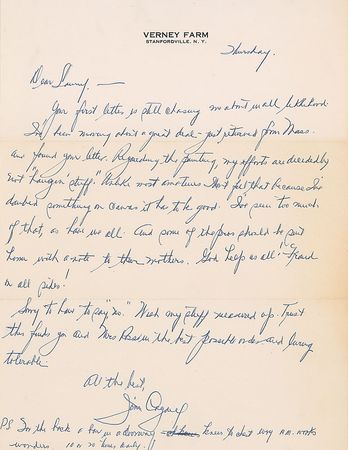 VERNEY FARM
STANFORDVILLE, N. Y.
Thursday.
Dear —
Your first letter is still chasing me about in all likelihood.
I've been moving about a great deal – just returned from Mass.
and found your letter. Regarding the painting, my efforts are decidedly
not "hangin' stuff." Unlike most amateurs I don't feel that because I've
daubed something on canvas it has to be good. I've seen too much
of that, as have we all. And some of the pros should be sent
home with a note to their mothers. God help us all! – Fraud
on all sides!
Sorry to have to say "no." Wish my stuff measured up. Trust
this finds you and Mrs in the best possible order and living
tolerable.
All the best,
Jim Cagney
P.S. For the back a bar in a doorway knees to chest every A.M. works
wonders. 10 or 20 times daily!!